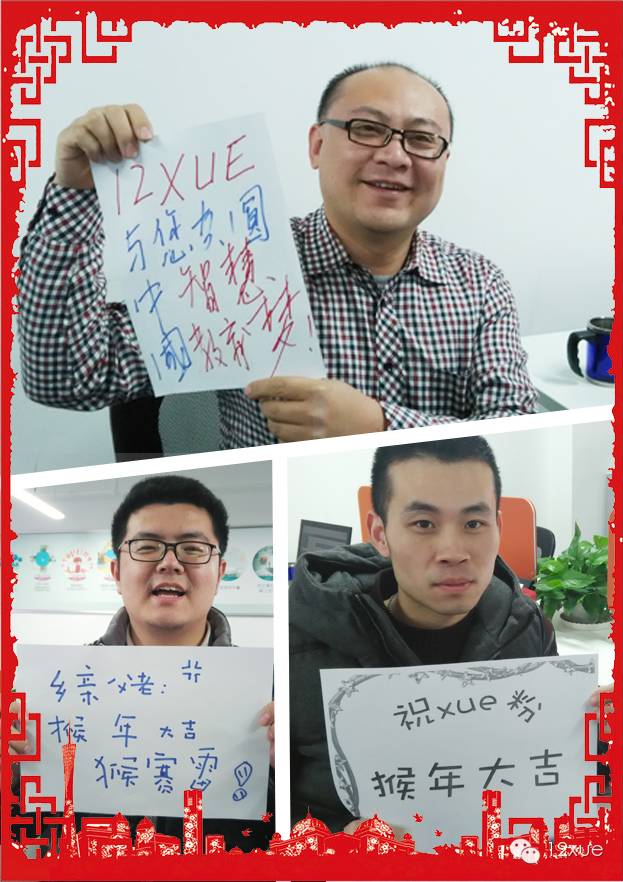 12XUE
与您共圆
中国
智慧
教育梦!
乡亲父老:
猴年大吉
猴赛雷!!
祝xue粉
猴年大吉
12xue